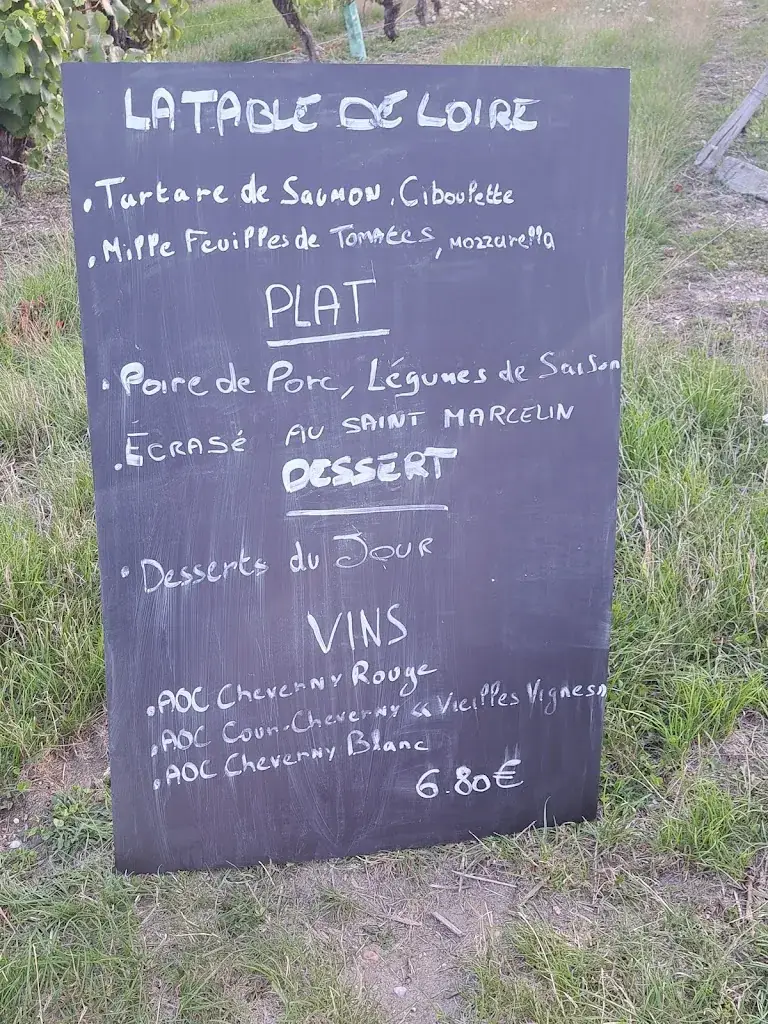 LA TABLE DE LOIRE
. Tartare de SAUMON, Ciboulette
. Mille Feuilles de TOMATES, MOZZarella
PLAT
. Poire de Porc, Légumes de Saison
. ÉCRASÉ AU SAINT MARCELIN
DESSERT
. Desserts du JOUR
VINS
. AOC Cheverny Rouge
. AOC Cour-Cheverny « Vieilles Vignes »
. AOC Cheverny Blanc
6.80€